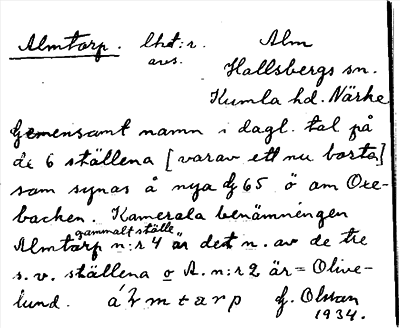 Almtorp. lht:r. Alm
avs.
Hallsbergs sn.
Kumla hd. Närke
Gemensamt namn i dagl. tal på
de 6 ställena [varav ett nu borta]
som synas å nya 65 ö om Oxe-
backen. Kamerala benämningen
gammalt ställe
Almtorp n:r 4 är det n. av de tre
s.v. ställena o A. n:r 2 är = Olive-
lund. G. Olson
1934.